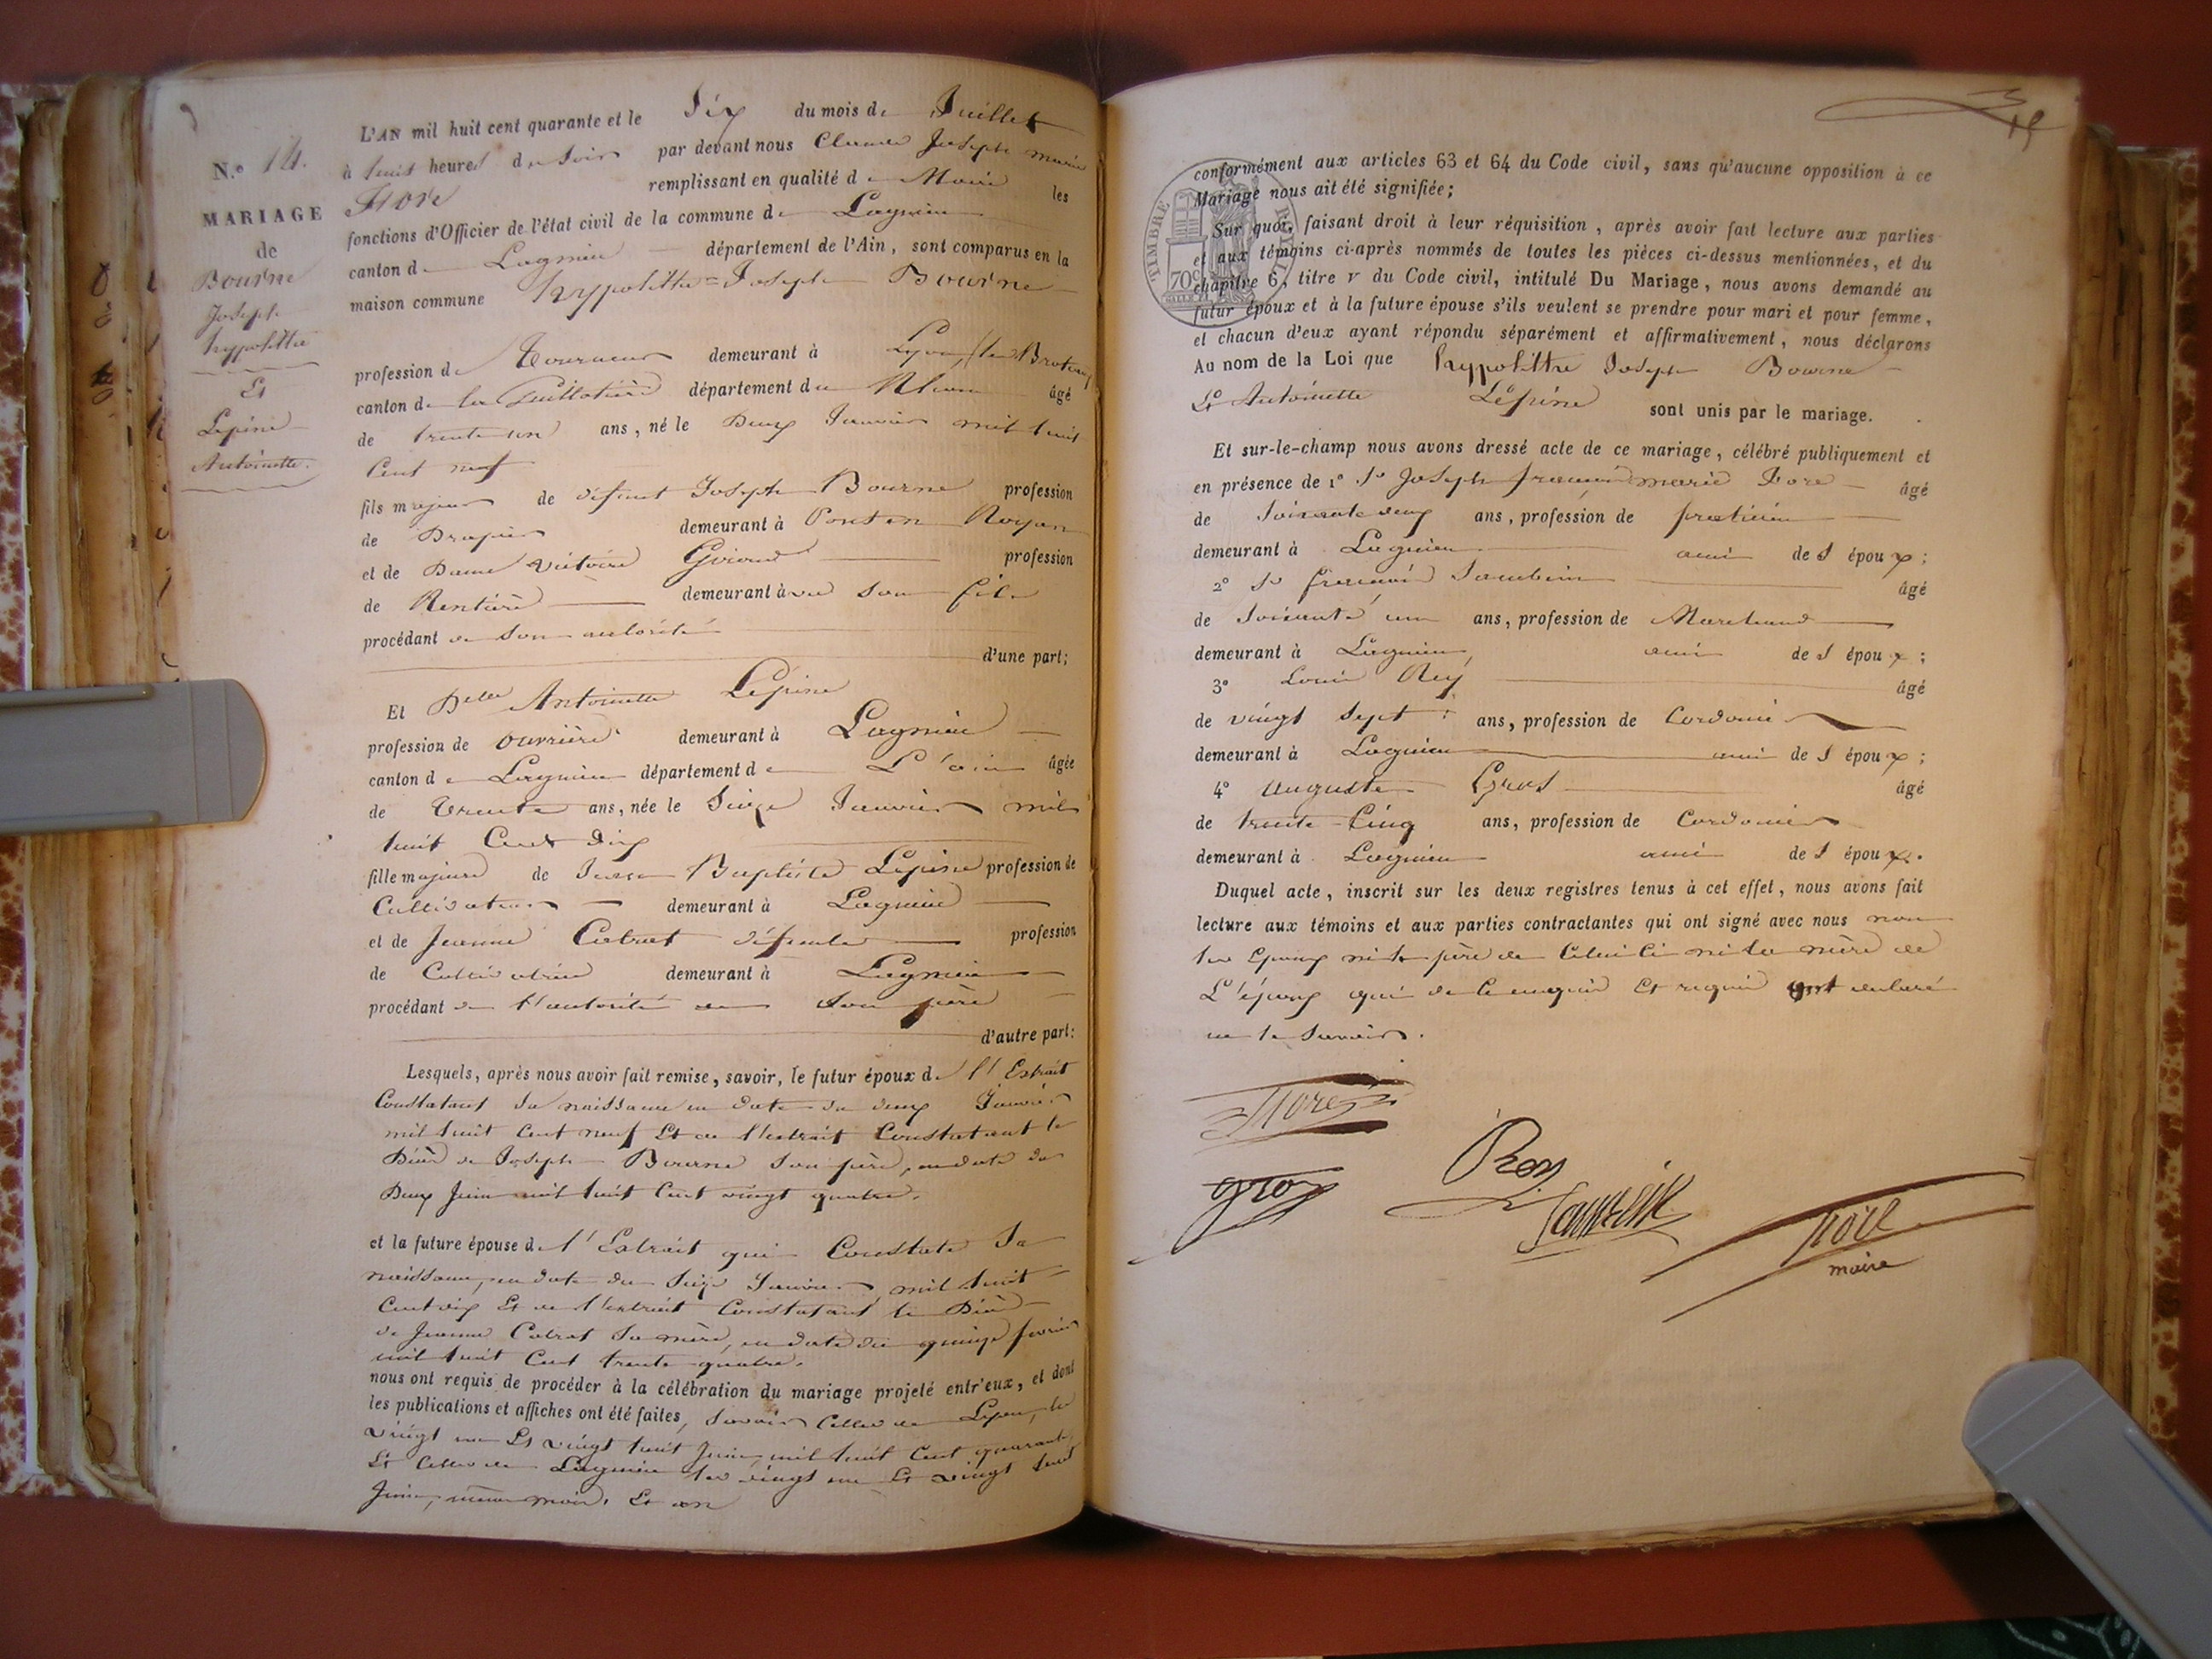 N.o 14.
MARIAGE
de
Bourne
Joseph
hyppolitte
Et
Lépine
Antoinette.
L'AN mil huit cent quarante et le Six du mois de Juillet
à huit heures du Soir par devant nous Claude Joseph marie
remplissant en qualité de Maire les
fonctions d'Officier de l'état civil de la commune de Lagnieu
canton de Lagnieu département de l'Ain, sont comparus en la
maison commune hyppolitte = Joseph Bourne
profession de Tourneur demeurant à Lyon, (les Broteaux
canton de la Guillotière département du Rhone âgé
de trente un ans, né le Deux Janvier mil huit
Cent neuf
fils majeur de défunt Joseph Bourne profession
de Drapier demeurant à Pont en Royan
et de Dame victoire profession
de Rentière demeurant à son fils
procédant de Son autorité
d'une part;
Et Delle Antoinette Lépine
profession de ouvrière demeurant à Lagnieu
canton de Lagnieu département de L'ain âgée
de Trente ans, née le Seize Janvier mil
huit Cent Dix
fille majeure de Jean Baptiste Lépine profession de
Cultivateur demeurant à Lagnieu
et de Jeanne Catrat défunte profession
de Cultivatrice demeurant à Lagnieu
procédant de l'autorité de Son père
d'autre part:
Lesquels, après nous avoir fait remise, savoir, le futur époux de l'Extrait
Constatant Sa naissance en date du deux Janvier
mil huit Cent neuf Et de l'extrait Constatant le
Décès de Joseph Bourne Son père, en date du
Deux Juin mil huit Cent vingt quatre.
et la future épouse de l'Extrait qui Constate Sa
naissance, en date du Seize Janvier mil huit
Cent dix Et de l'extrait Constatant le Décès
de Jeanne Catrat Sa mère, en date du quinze fevrier
mil huit Cent trente quatre.
nous ont requis de procéder à la célébration du mariage projeté entr'eux, et dont
les publications et affiches ont été faites, Savoir Celles de Lyon, le
vingt un Et vingt huit Juin mil huit Cent quarante,
Et Celles de Lagnieu les vingt un Et vingt huit
Juin, même mois, Et an
TIMBRE ROYAL
70c
conformément aux articles 63 et 64 du Code civil, sans qu'aucune opposition à ce
Mariage nous ait été signifiée;
Sur quoi, faisant droit à leur réquisition, après avoir fait lecture aux parties
et aux témoins ci-après nommés de toutes les pièces ci-dessus mentionnées, et du
chapitre 6, titre v du Code civil, intitulé Du Mariage, nous avons demandé au
futur époux et à la future épouse s'ils veulent se prendre pour mari et pour femme,
et chacun d'eux ayant répondu séparément et affirmativement, nous déclarons
Au nom de la Loi que hyppolitte Joseph Bourne
Et Antoinette Lépine sont unis par le mariage.
Et sur-le-champ nous avons dressé acte de ce mariage, célébré publiquement et
en présence de 1o Sr Joseph françois marie âgé
de Soixante deux ans, profession de praticien
demeurant à Lagnieu ami de S époux;
2o Sr françois âgé
de Soixante un ans, profession de Marchand
demeurant à Lagnieu, ami de S époux;
3o Louis Rey âgé
de vingt Sept ans, profession de Cordonnier
demeurant à Lagnieu ami de S époux;
4o Auguste Gros âgé
de trente-Cinq ans, profession de Cordonnier
demeurant à Lagnieu ami de S époux.
Duquel acte, inscrit sur les deux registres tenus à cet effet, nous avons fait
lecture aux témoins et aux parties contractantes qui ont signé avec nous non
les Epoux ni le père de Celui Ci ni la mère de
L'époux qui de Ce enquis Et requis ont déclaré
ne le Savoir.
gros
Rey
maire